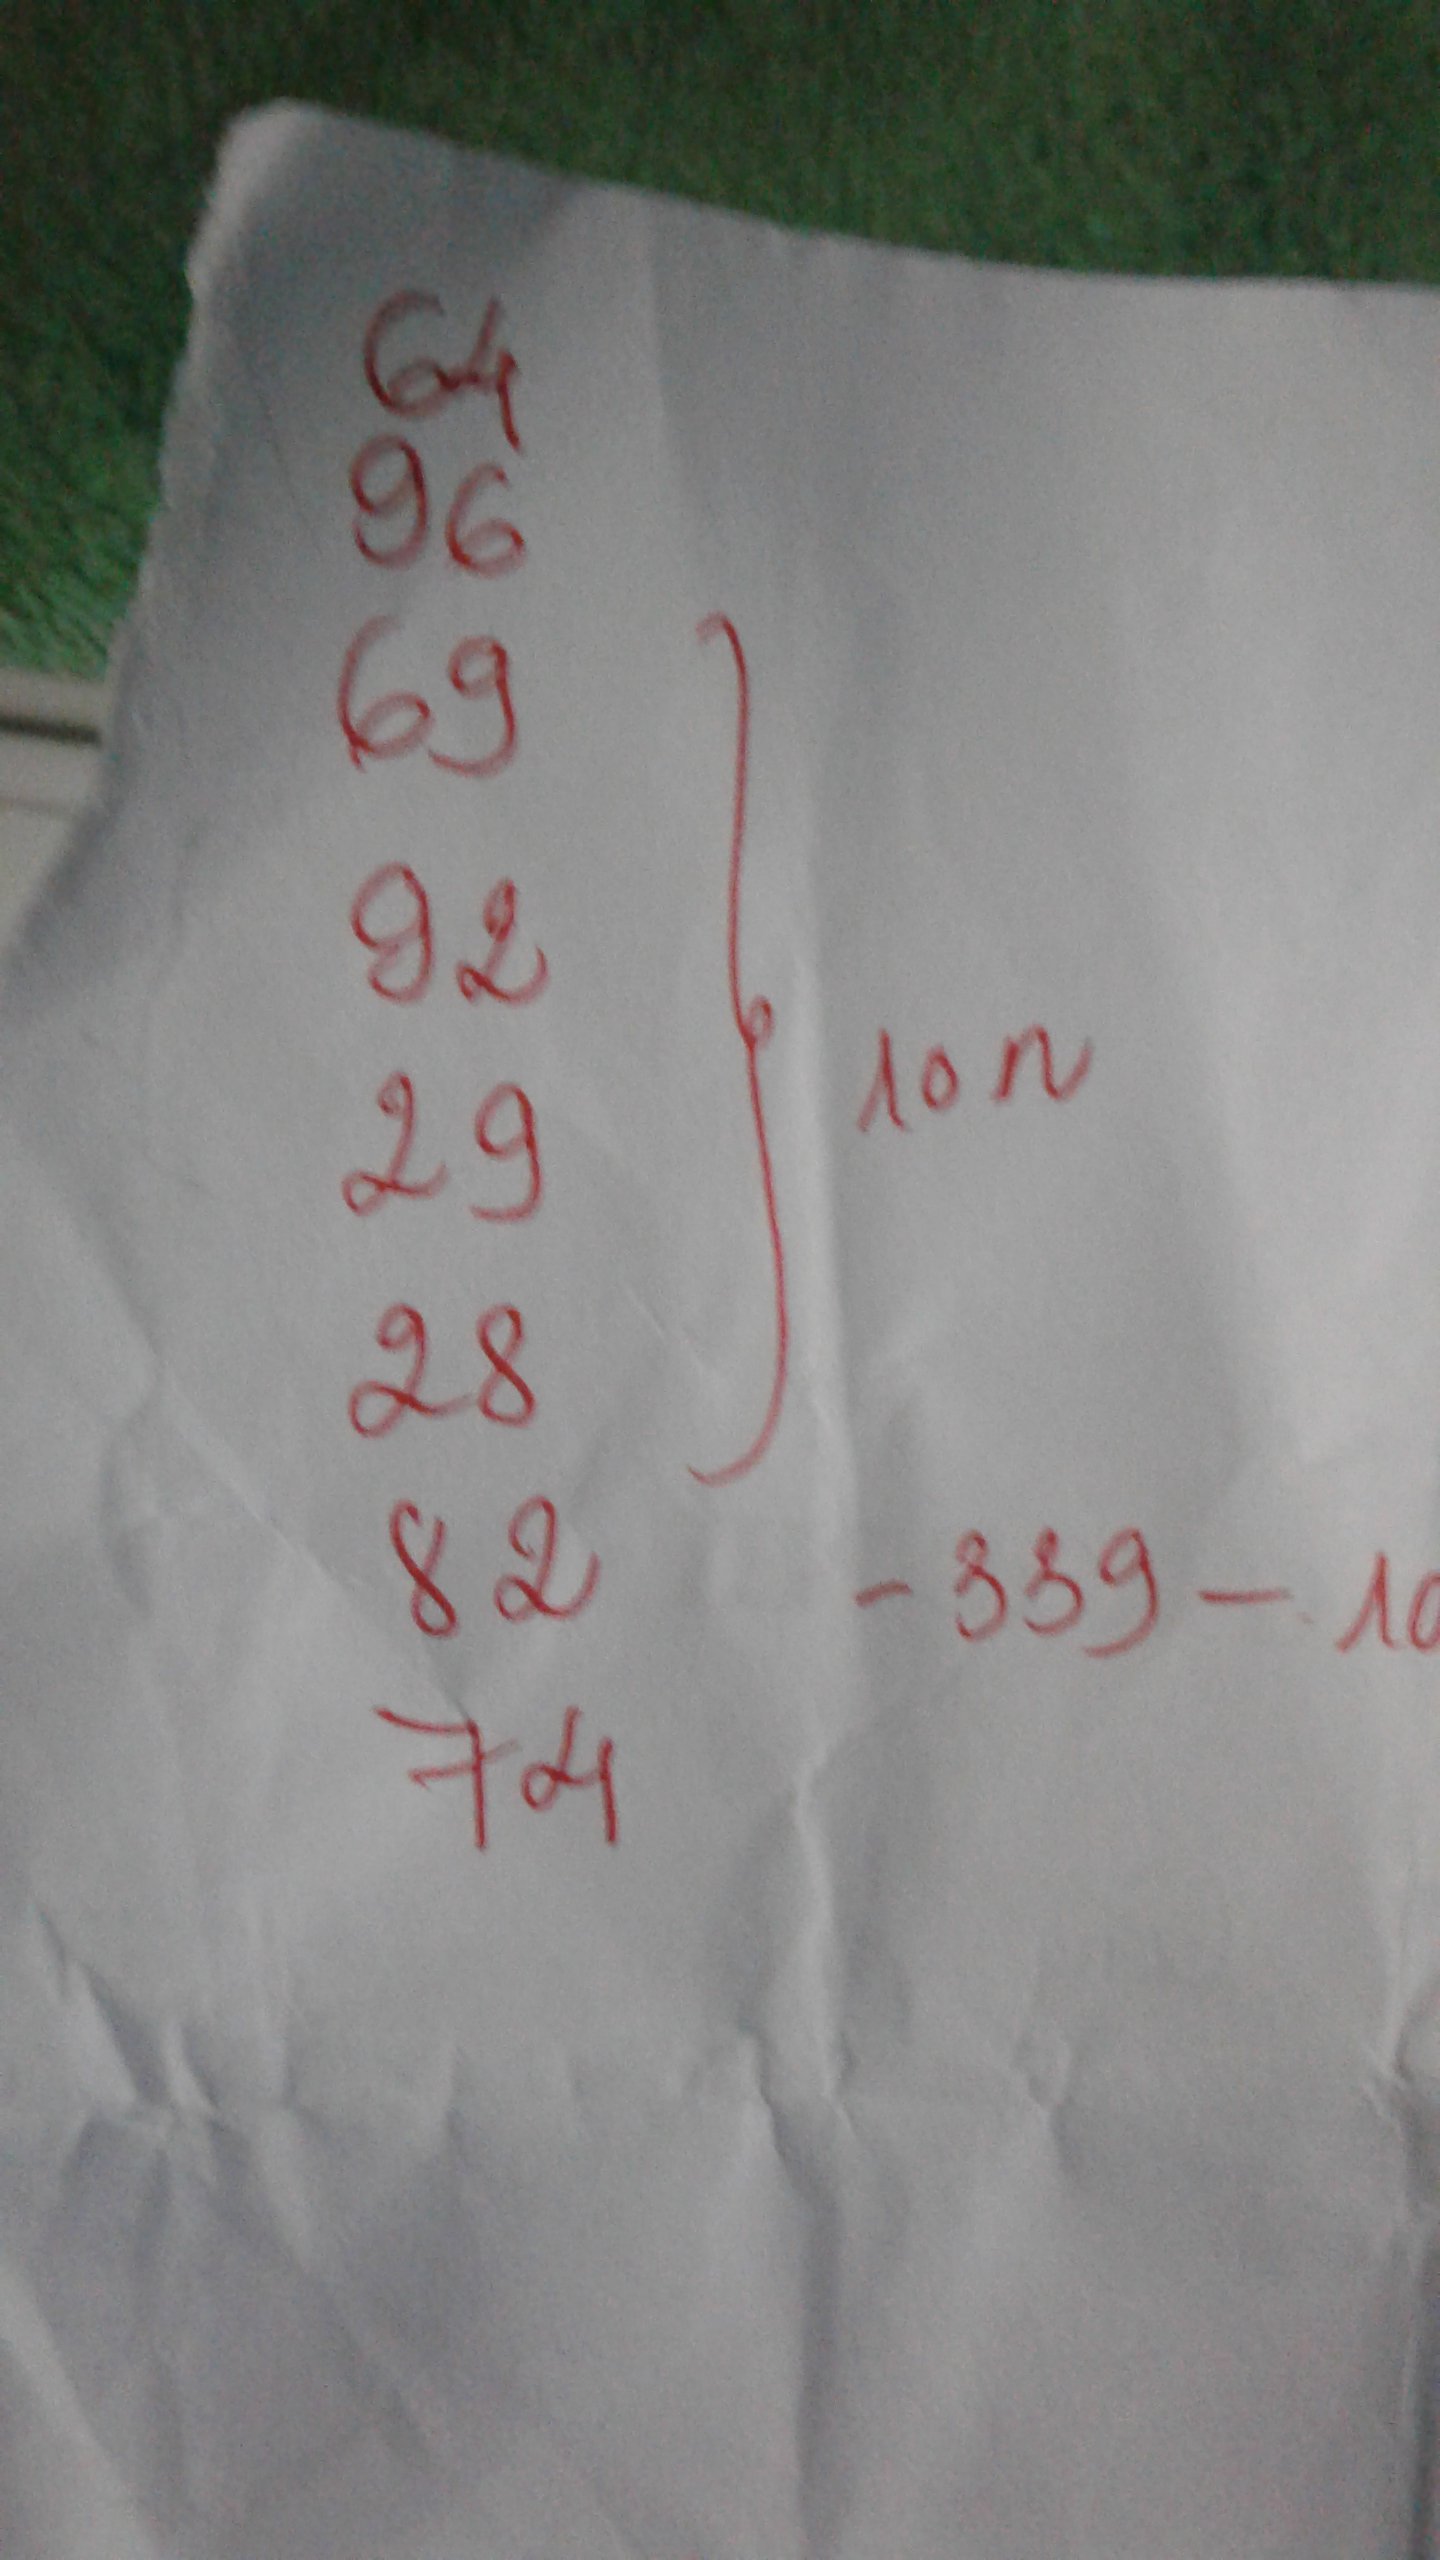 64
96
69
92
29
10n
28
82 - 339 - 10
74